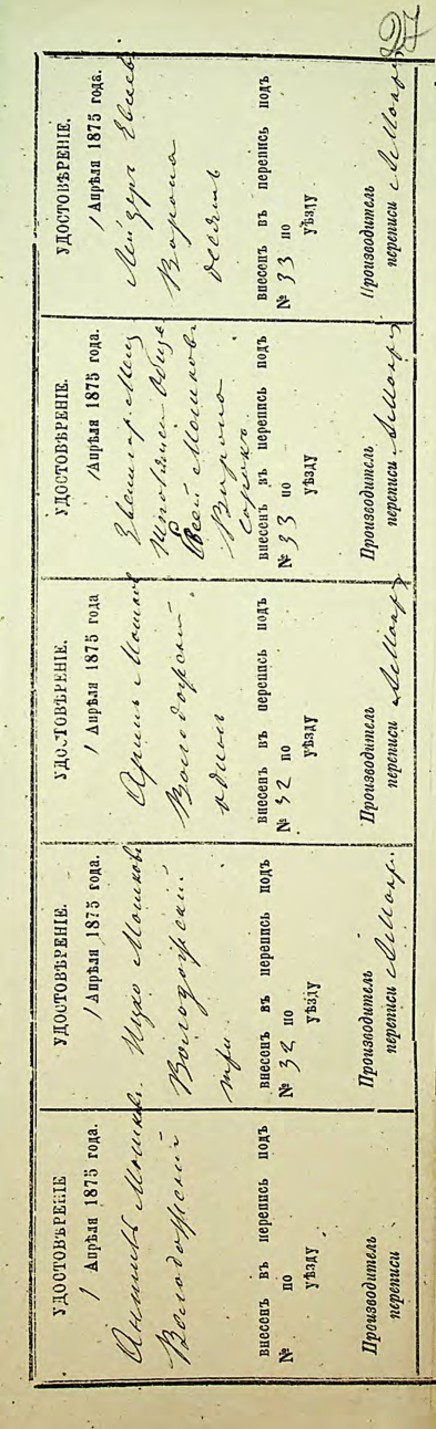 УДОСТОВѢРЕНІЕ
1 Апрѣля 1875 года.
Мошков.
Володарский
внесенъ въ перепись подъ
№ по
уѣзду
Производитель
переписи
УДОСТОВѢРЕНІЕ.
1 Апрѣля 1875 года.
Ицко Мошков
Володарский
три
внесенъ въ перепись подъ
№ 32 по
уѣзду
Производитель
переписи
УДОСТОВѢРЕНІЕ.
1 Апрѣля 1875 года
Мошков
Володарский
один
внесенъ въ перепись подъ
№ 32 по
уѣзду
Производитель
переписи
УДОСТОВѢРЕНІЕ.
1 Апрѣля 1875 года.
Мошков
Ворона
сорокъ
внесенъ въ перепись подъ
№ 33 по
уѣзду
Производитель
переписи
УДОСТОВѢРЕНІЕ.
1 Апрѣля 1875 года.
Лейзер
Ворона
десять
внесенъ въ перепись подъ
№ 33 по
уѣзду
Производитель
переписи